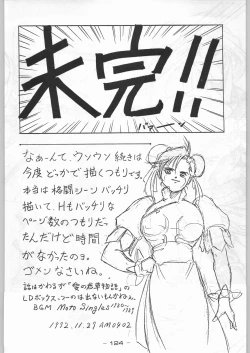 未完!!
バァーーン
なぁーんて、ウソウソ続きは
今度どっかで描くつもりです。
本当は格闘シーンバッチリ
描いて、Hもバッチリな
ページ数のつもりだっ
たんだけど時間
がなかったのョ。
ゴメンなさいね。
話はかわるが「愛の若草物語」の
LDボックスっつーのは出ないもんかねェ。
BGM Moto Singles
1992.11.29 AM0402
- 124 -